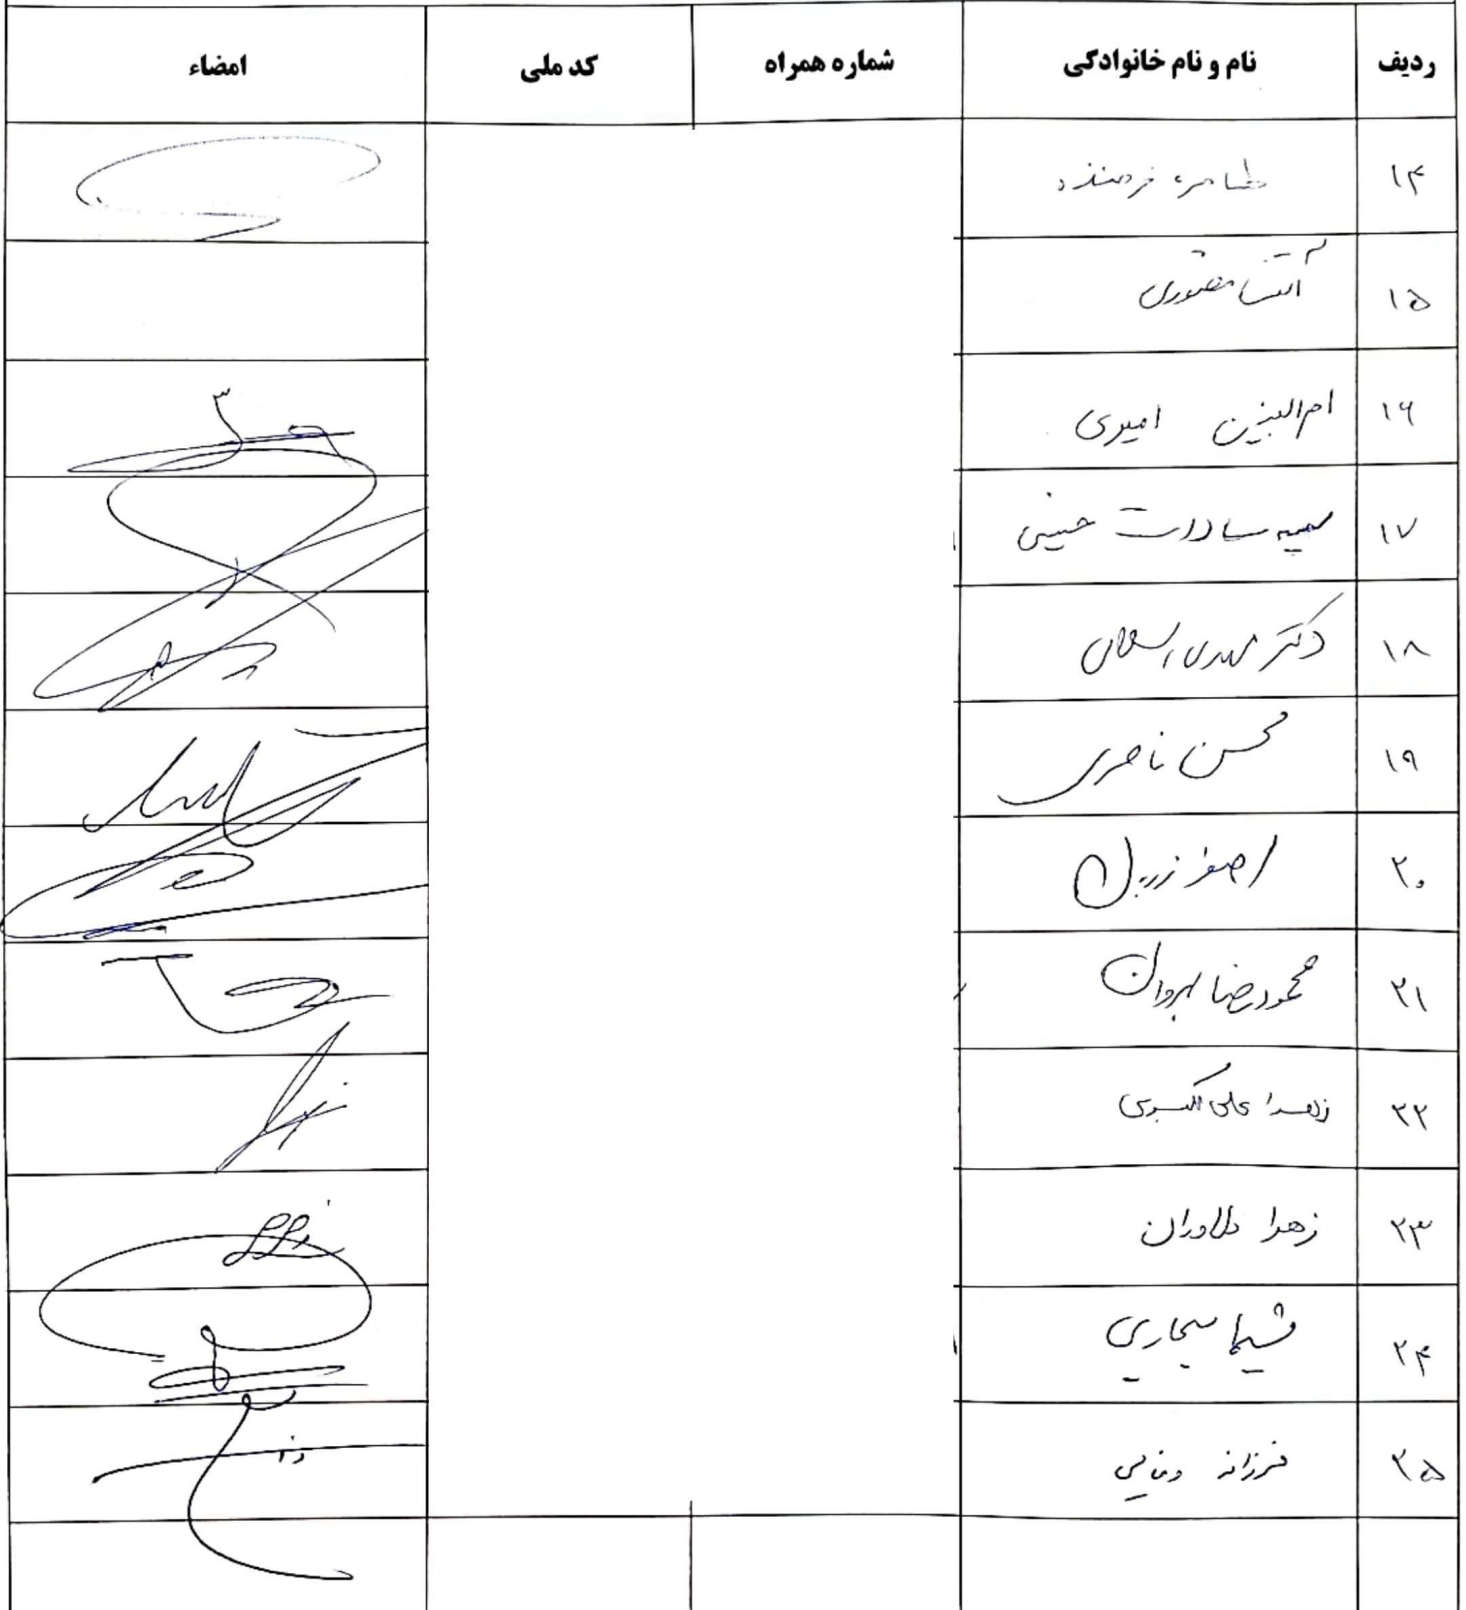 ردیف نام و نام خانوادگی شماره همراه کد ملی امضاء
۱۴ طاهره خرمنده
۱۵ منصوری
۱۶ ام البنین امیری
۱۷ سمیه سادات حسینی
۱۸ دکتر مهدی
۱۹ محسن ناصری
۲۰ اصغر
۲۱ محمودرضا
۲۲ زهرا علی اکبری
۲۳ زهرا دلاوران
۲۴ شیما
۲۵ فرزانه وفایی